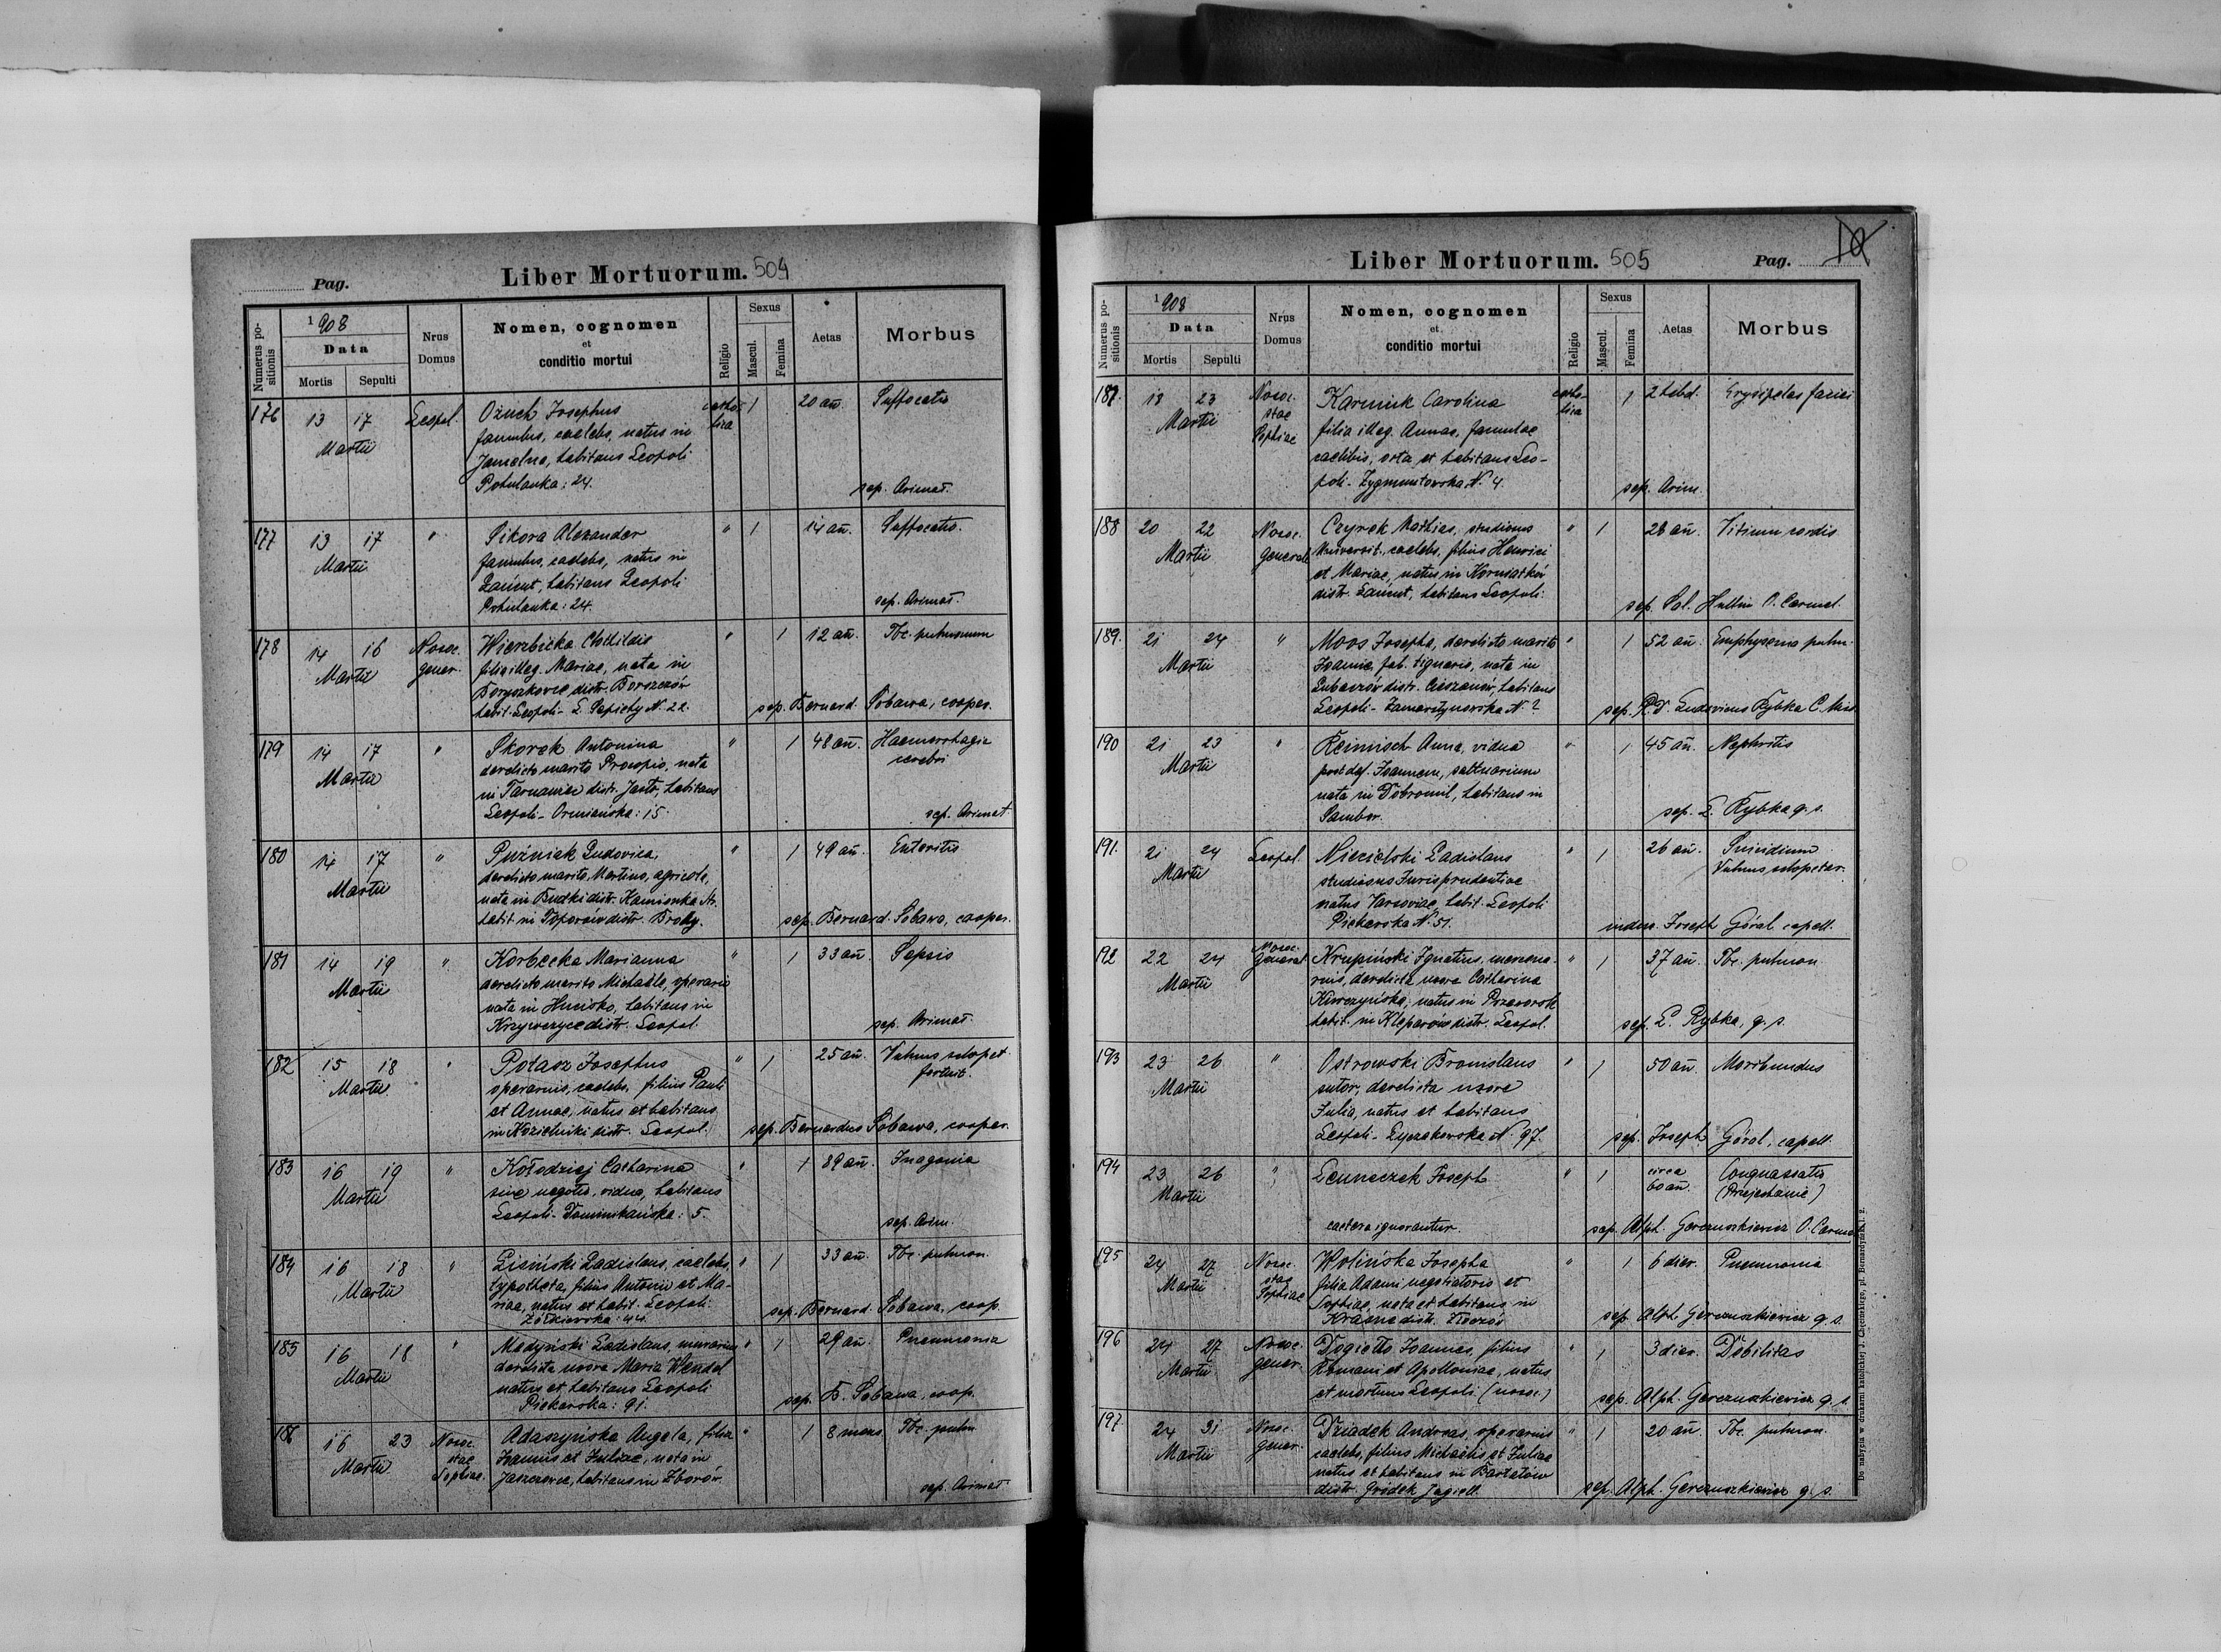 Pag.
Liber Mortuorum. 504
Numerus positionis
1908
Data
Mortis
Sepulti
Nrus Domus
Nomen, cognomen
et
conditio mortui
Religio
Sexus
Mascul.
Femina
Aetas
Morbus
176 13 17 Leopol. Ożuch Josephus catho- 1 20 añ. Suffocatio
Martii famulus, caelebs, natus in lica
Jamelna, habitans Leopoli
Pohulanka: 24. sep. Arimat.
177 13 17 " Sikora Alexander " 1 14 añ. Suffocatio.
Martii famulus, caelebs, natus in
Łańcut, habitans Leopoli
Pohulanka: 24. sep. Arimat.
178 14 16 Nosoc. Wierzbicka Clothildis " 1 12 añ. Tbc. pulmonum
Martii gener. filia illeg. Mariae, nata in
Boryszkowce distr. Borszczów
habit. Leopoli - L. Sapiehy N. 22. sep. Bernard. Sobawa, cooper.
179 14 17 " Skorek Antonina " 1 48 añ. Haemorrhagia
Martii derelicta marito Procopio, nata cerebri
in Tarnawiec distr. Jasło, habitans
Leopoli - Ormiańska: 15. sep. Arimat.
180 14 17 " Puźniak Ludovica, " 1 49 añ. Enteritis
Martii derelicta marito Martino, agricola,
nata in Budki distr. Kamionka str.
habit. in Toporów distr. Brody. sep. Bernard. Sobawa, cooper.
181 14 19 " Korbecka Marianna " 1 33 añ. Sepsis
Martii derelicta marito Michaële, operario
nata in Hucisko, habitans in
Krzywczyce distr. Leopol. sep. Arimat.
182 15 18 " Potasz Josephus " 1 25 añ. Vulnus sclopet.
Martii operarius, caelebs, filius Pauli fortuit.
et Annae, natus et habitans
in Kozielniki distr. Leopol. sep. Bernardus Sobawa, cooper.
183 16 19 " Kołodziej Catharina " 1 89 añ. Inagonia
Martii sine negotio, vidua, habitans
Leopoli - Dominikańska: 5. sep. Arim.
184 16 18 " Lisiński Ladislaus, caelebs, " 1 33 añ. Tbc. pulmon.
Martii typotheta, filius Antonii et Ma-
riae, natus et habit. Leopoli:
Żółkiewska: 44. sep. Bernard. Sobawa, coop.
185 16 18 " Medyński Ladislaus, murarius " 1 29 añ. Pneumonia
Martii derelicta uxore Maria Wendel
natus et habitans Leopoli
Piekarska: 91. sep. B. Sobawa, coop.
186 16 23 Nosoc. Adaszyńska Angela, filia " 1 8 mens. Tbc. pulm.
Martii stae Joannis et Juliae, nata in
Sophiae. Jaszczowce, habitans in Zborów. sep. Arimat.
Liber Mortuorum. 505
Pag. 10
Numerus positionis
1908
Data
Mortis
Sepulti
Nrus Domus
Nomen, cognomen
et
conditio mortui
Religio
Sexus
Mascul.
Femina
Aetas
Morbus
187. 18 23 Nosoc. Karmiuk Carolina catho- 1 2 hebd. Erysipelas faciei
Martii stae filia illeg. Annae, famulae lica
Sophiae caelibis, orta et habitans Leo-
poli - Zygmuntowska N. 4. sep. Arim.
188 20 22 Nosoc. Czyrek Mathias, studiosus " 1 28 añ. Vitium cordis
Martii general. Universit. caelebs, filius Henrici
et Mariae, natus in Korniaktów
distr. Łańcut, habitans Leopoli. sep. Sol. Huttin O. Carmel.
189. 21 24 " Moos Josepha, derelicto marito " 1 52 añ. Emphysema pulm.
Martii Joanne, fab. lignario, nata in
Lubaczów distr. Cieszanów, habitans
Leopoli - Zamarstynowska N. ? sep. P. D. Ludovicus Rybka C. Miss.
190 21 23 " Reinisch Anna, vidua " 1 45 añ. Nephritis
Martii post def. Joannem, saltuarium
nata in Dobromil, habitans in
Sambor. sep. L. Rybka q. s.
191. 21 24 Leopol. Niecielski Ladislaus " 1 26 añ. Suicidium
Martii studiosus Jurisprudentiae Vulnus sclopetar.
natus Varsoviae, habit. Leopoli
Piekarska N. 51. indux. Joseph Góral capell.
192 22 24 Nosoc. Krupiński Ignatius, mercena- " 1 37 añ. Tbc. pulmon.
Martii general rius, derelicta uxore Catharina
natus in Przeworsk
habit. in Kleparów distr. Leopol. sep. L. Rybka, q. s.
193 23 26 " Ostrowski Bronislaus " 1 50 añ. Moribundus
Martii sutor, derelicta uxore
Julia, natus et habitans
Leopoli - Łyczakowska N. 97. sep. Joseph Góral, capell.
194 23 26 " Lenneczek Joseph " 1 circa 60 añ. Conquassatio
Martii (Przejechanie)
caetera ignorantur. sep. Alph. Gerczuszkiewicz O. Carmel.
195 24 27 Nosoc. Wolińska Josepha " 1 6 dier. Pneumonia
Martii stae filia Adami negotiatoris et
Sophiae Sophiae, nata et habitans in
Krasne distr. Złoczów sep. Alph. Gerczuszkiewicz q. s.
196 24 27 Nosoc. Dogiełło Joannes, filius " 1 3 dier. Debilitas
Martii gener. Romani et Apolloniae, natus
et mortuus Leopoli (nosoc.) sep. Alph. Gerczuszkiewicz q. s.
197. 24 31 Nosoc. Dziadek Andreas, operarius " 1 20 añ. Tbc. pulmon.
Martii gener. caelebs, filius Michaëlis et Juliae
natus et habitans in Bartatów
distr. Gródek Jagiell. sep. Alph. Gerczuszkiewicz q. s.
Do nabycia w drukarni katolickiej J. Chęcińskiego, pl. Bernardyński l. 2.